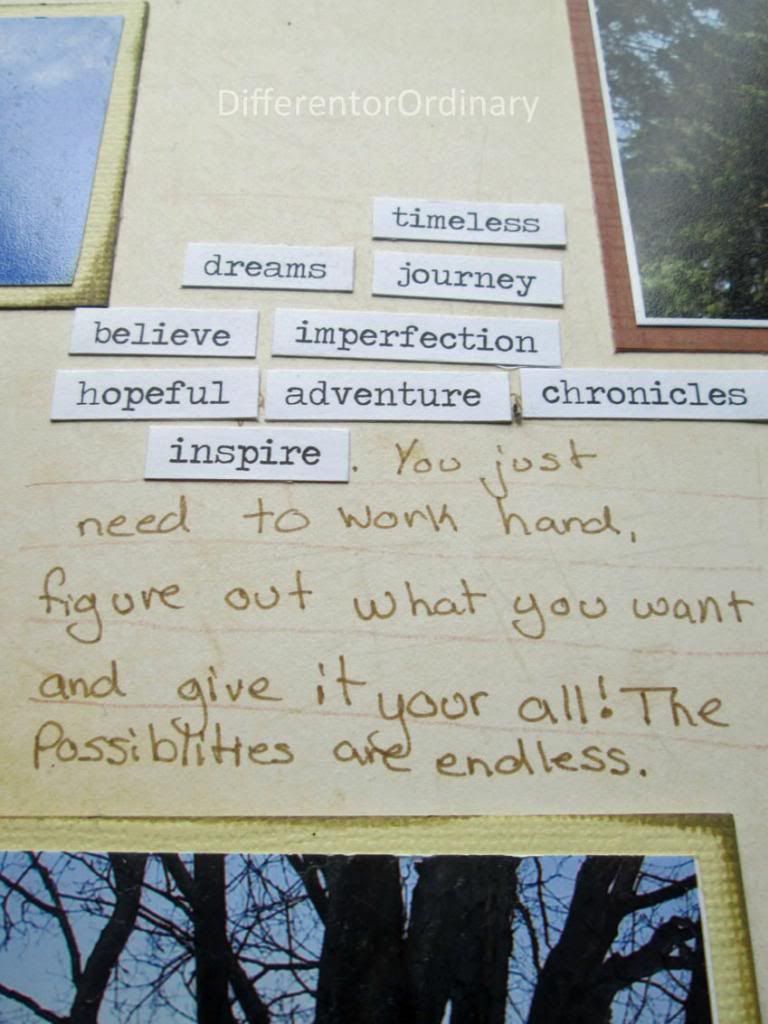 DifferentorOrdinary
timeless
dreams journey
believe imperfection
hopeful adventure chronicles
inspire . You just
need to work hand,
figure out what you want
and give it your all! The
Possiblities are endless.